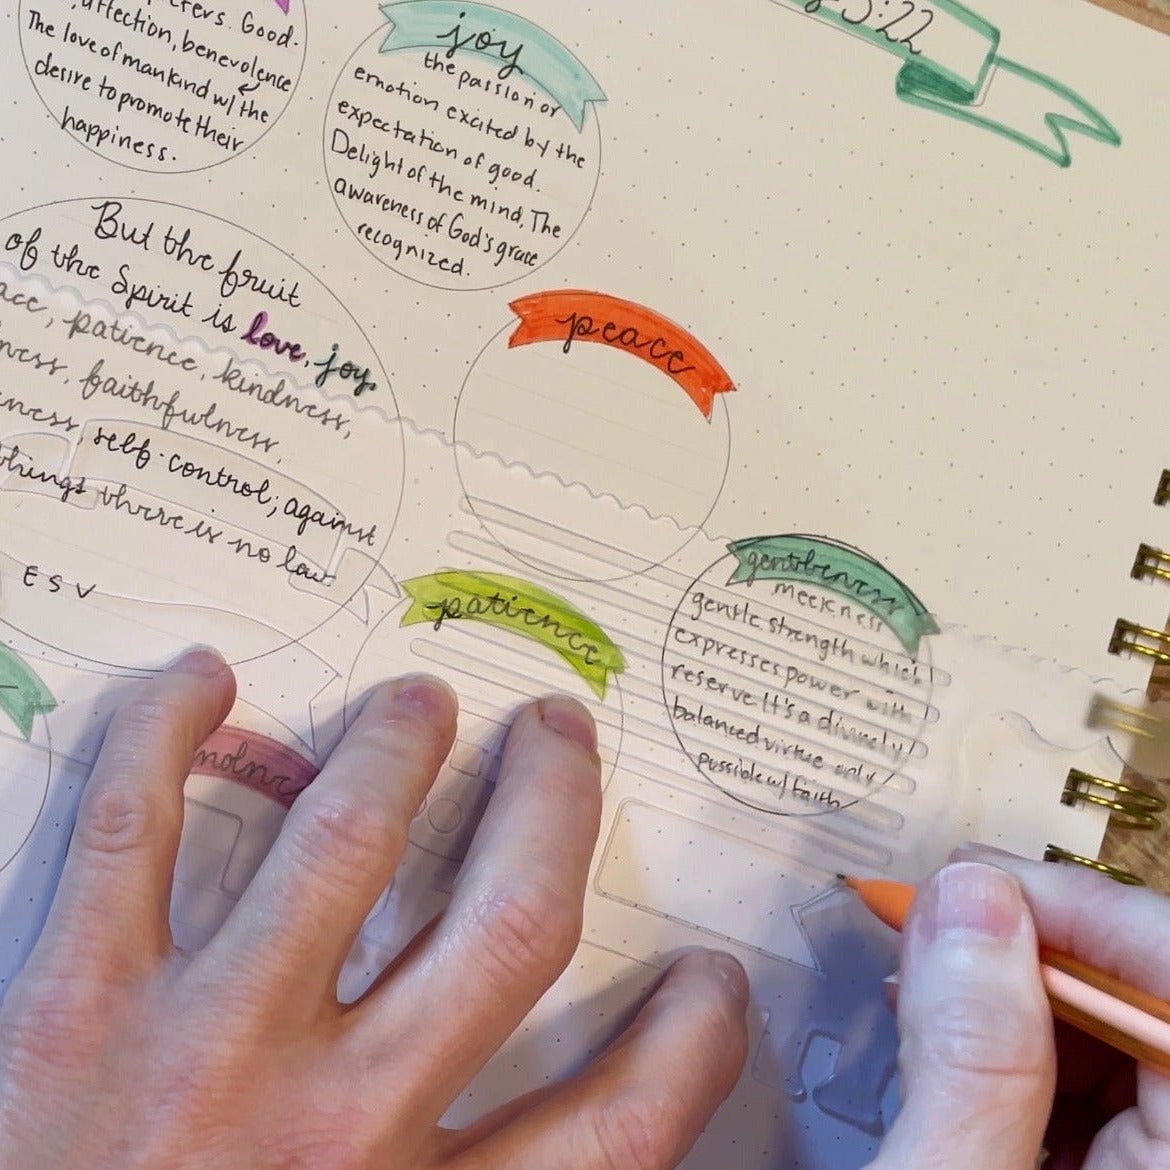 Good.
affection, benevolence
The love of mankind w/ the
desire to promote their
happiness.
joy
the passion or
emotion excited by the
expectation of good.
Delight of the mind, The
awareness of God's grace
recognized.
5:22
But the fruit
of the Spirit is love, joy,
patience, kindness,
faithfulness,
self-control; against
things there is no law
ESV
peace
patience
gentleness
meekness
gentle strength which
expresses power with
reserve It's a divinely
balanced virtue only
possible w/ faith